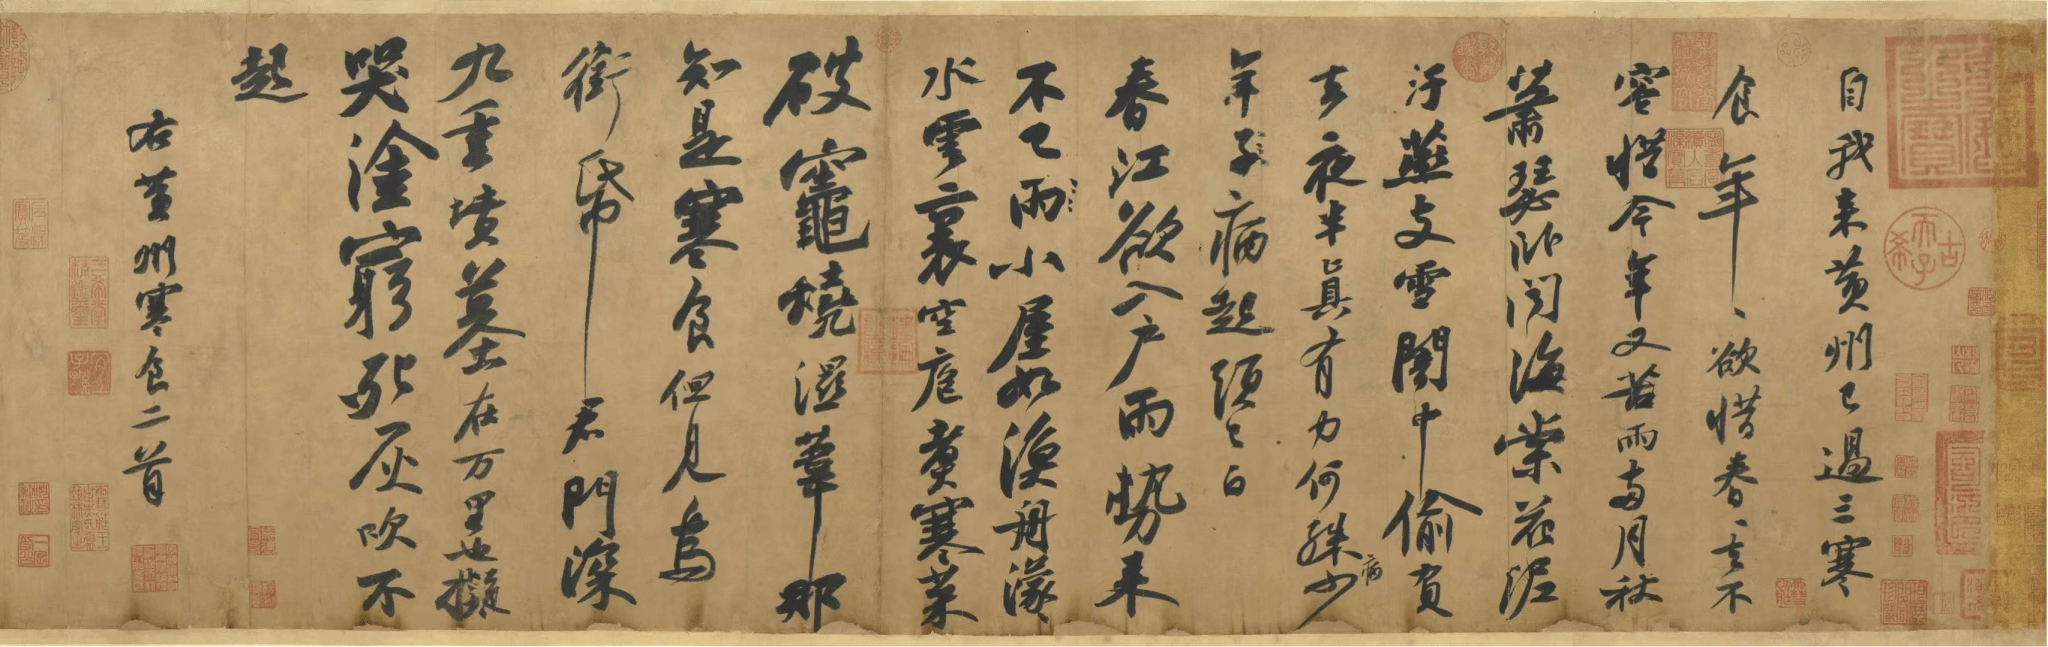 自我來黃州已過三寒
食年、欲惜春、去不
容惜今年又苦雨兩月秋
蕭瑟臥聞海棠花泥
汙燕支雪闇中偷負
去夜半真有力何殊少
病
年子病起頭已白
春江欲入戶雨勢來
不已雨小屋如漁舟濛
水雲裏空庖煑寒菜
破竈燒濕葦那
知是寒食但見烏
銜帋君門深
九重墳墓在万里也擬
哭塗窮死灰吹不
起
右黃州寒食二首
古希天子
三希堂精鑑璽
宜子孫